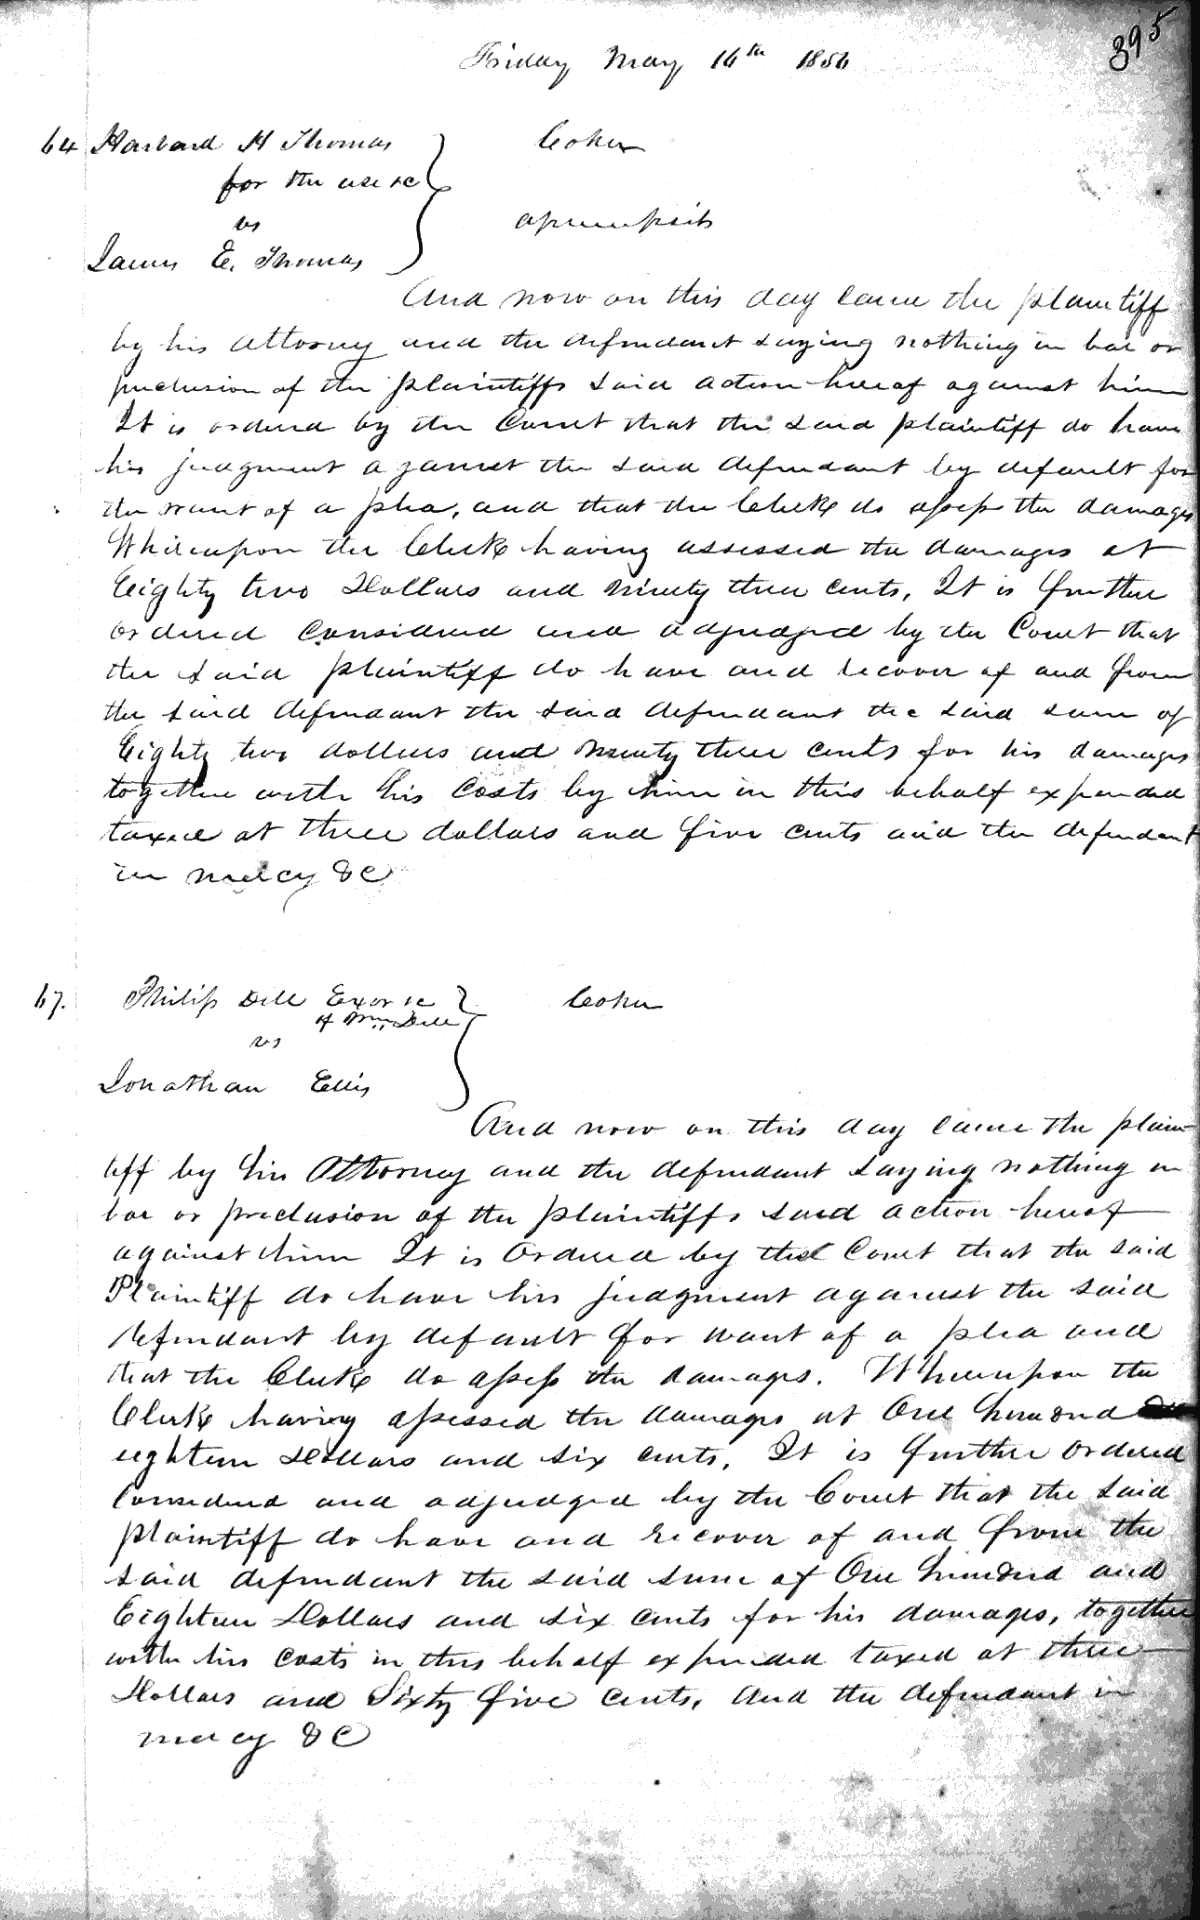 395
Friday May 16th 1856
64 Harbard H Thomas Coker
for the use &c
vs assumpsit
James E. Thomas
And now on this day came the plaintiff
by his attorney and the defendant saying nothing in bar or
preclusion of the plaintiffs said action hereof against him
It is ordered by the Court that the said plaintiff do have
his judgment against the said defendant by default for
the want of a plea, and that the Clerk do assess the damages
Whereupon the Clerk having assessed the damages at
Eighty two Dollars and ninety three cents, It is further
ordered considered and adjudged by the Court that
the said plaintiff do have and recover of and from
the said defendant the said defendant the said sum of
Eighty two dollars and ninety three cents for his damages
together with his costs by him in this behalf expended
taxed at three dollars and five cents and the defendant
in mercy &C
67. Philip Dill Exor &c Coker
of Wm Dill
vs
Jonathan Ellis
And now on this day came the plain
tiff by his Attorney and the defendant saying nothing in
bar or preclusion of the plaintiffs said action hereof
against him It is ordered by the Court that the said
Plaintiff do have his judgment against the said
defendant by default for want of a plea and
that the Clerk do assess the damages. Whereupon the
Clerk having assessed the damages at One hundred
eighteen Dollars and six cents, It is further ordered
considered and adjudged by the Court that the said
plaintiff do have and recover of and from the
said defendant the said sum of One hundred and
Eighteen Dollars and six cents for his damages, together
with his costs in this behalf expended taxed at three
Dollars and Sixty five cents, and the defendant in
mercy &C